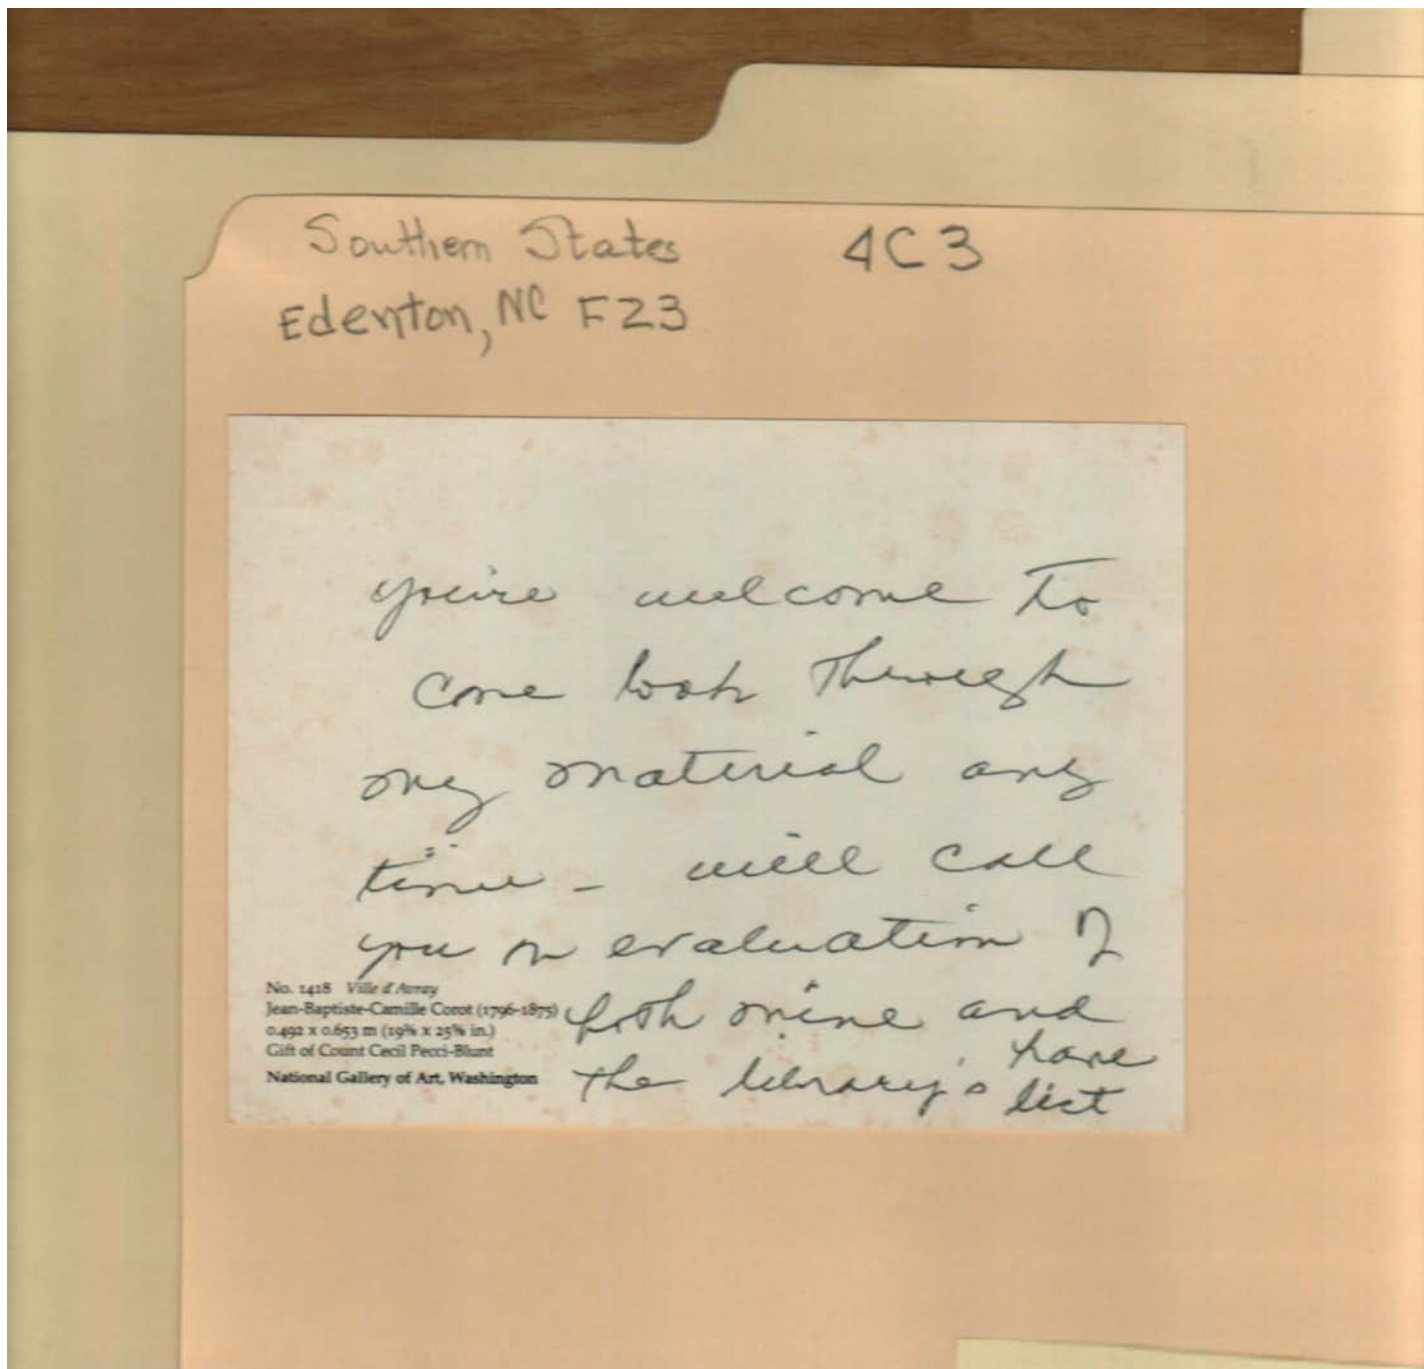 Southern States 4C3
Edenton, NC F23
you're welcome to
come look through
my material any
time - will call
you on evaluation of
both mine and
the library's have
list
No. 1418 Ville d'Avray
Jean-Baptiste-Camille Corot (1796-1875)
0.492 x 0.653 m (19⅜ x 25⅝ in.)
Gift of Count Cecil Pecci-Blunt
National Gallery of Art, Washington